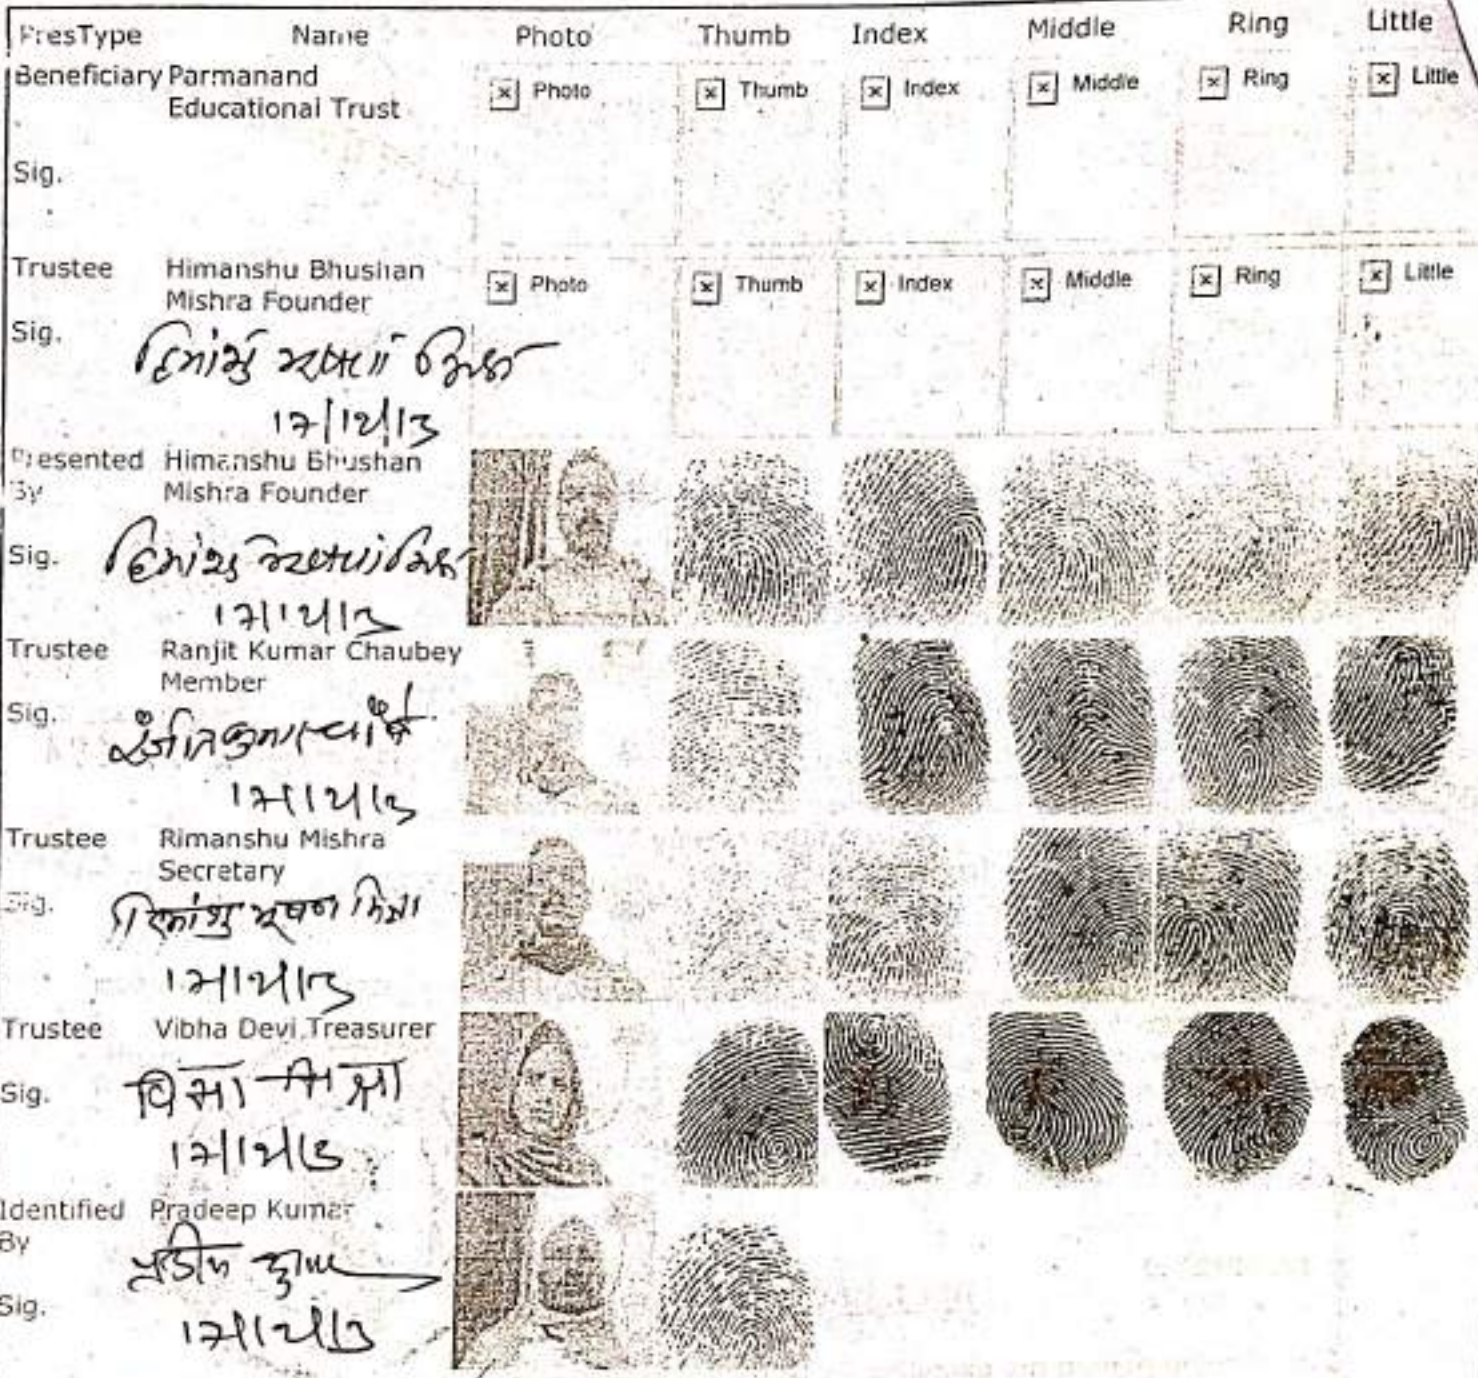 PresType Name Photo Thumb Index Middle Ring Little
Beneficiary Parmanand Photo Thumb Index Middle Ring Little
Educational Trust
Sig.
Trustee Himanshu Bhushan Photo Thumb Index Middle Ring Little
Mishra Founder
Sig.
हिमांशु भूषण मिश्रा
17/12/13
Presented Himanshu Bhushan
By Mishra Founder
Sig. हिमांशु भूषण मिश्रा
17/12/13
Trustee Ranjit Kumar Chaubey
Member
Sig. रंजीत कुमार चौबे
17/12/13
Trustee Rimanshu Mishra
Secretary
Sig. रिमांशु भूषण मिश्रा
17/12/13
Trustee Vibha Devi Treasurer
Sig. विभा मिश्रा
17/12/13
Identified Pradeep Kumar
By
प्रदीप कुमार
Sig.
17/12/13